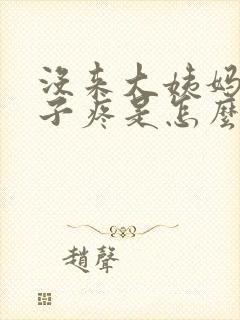 没来大姨妈
子疼是怎麼
趙聲